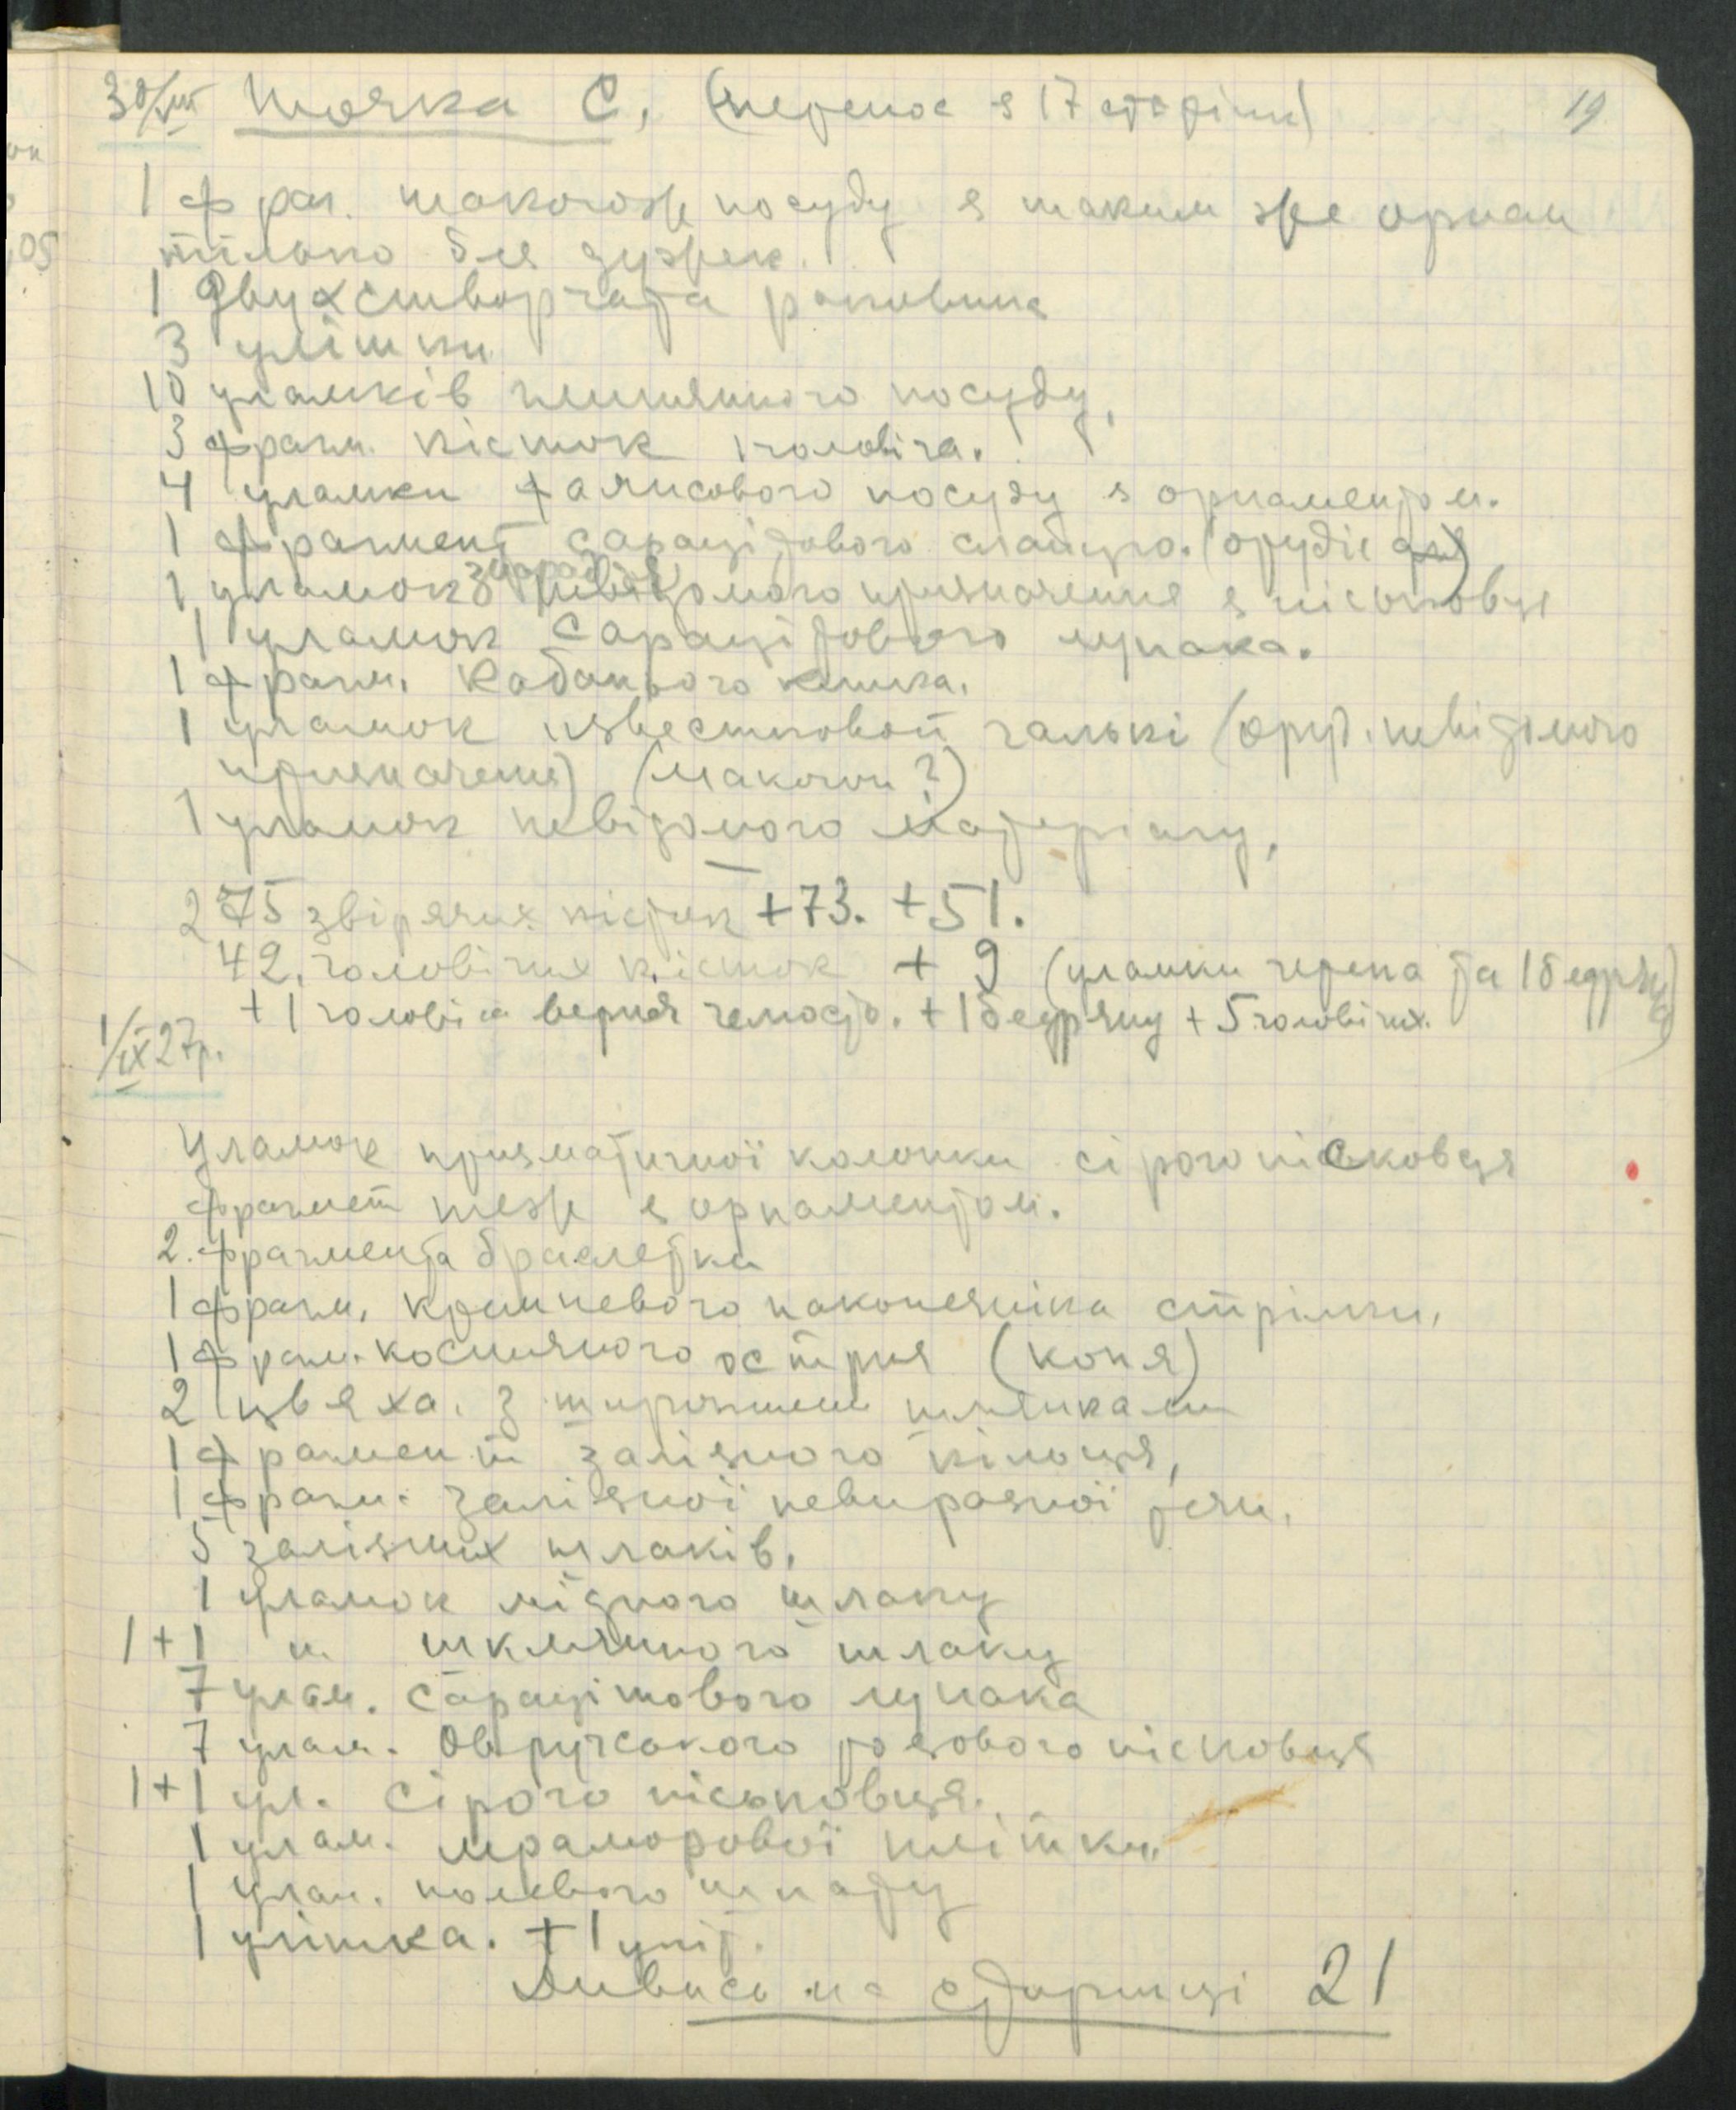 30/VIII Точка С, (перенос з 17 сторінки) 19
1 фраг. такогож посуду з таким же орнам
тільки без дужек.
1 Двухстворчата раковина
3 улітки
10 уламків глиняного посуду,
3 фрагм. кісток чоловіча.
4 уламки фаянсового посуду з орнаментом.
1 фрагмент сарацідового сланцю. (орудіє для)
1 уламок знаряд невідомого призначення з пісковця
1 уламок сарацідового лупака.
1 фрагм. Кабанього клика.
1 уламок известковой гальки (оруд. невідомого
призначення) (макогон?)
1 уламок невідомого матеріалу,
275 звірячих кісток +73. +51.
42. чоловічих кісток + 9 (уламки черепа та 1 бедряна)
+ 1 чоловіча верхня челюсть. + 1 бедряну + 5 чоловічих.
1/IX 27р.
Уламок призматичної колонки сірого пісковця
фрагмент теж з орнаментом.
2. фрагмента браслетки
1 фрагм. кремневого наконечніка стрілки,
1 фрагм. костяного острія (коня)
2 цвяха. з широкими шляпками
1 фрагмент залізного кільця,
1 фрагм. залізної невиразної речи.
5 залізних шлаків.
1 уламок мідного шлаку
1+1 " шкляного шлаку
7 улам. сарацітового лупака
7 улам. Овручського розового пісковця
1+1 ул. сірого піськовця.
1 улам. мраморової плітки,
1 улам. полевого шпату
1 улітка. + 1 уліт.
Дивись на сторінці 21